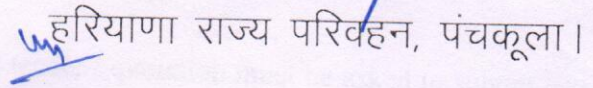 हरियाणा राज्य परिवहन, पंचकूला।